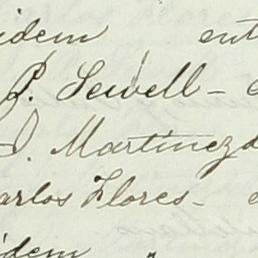 idem ent
P. Sewell -
D. Martinez d
arlos Flores -
idem "